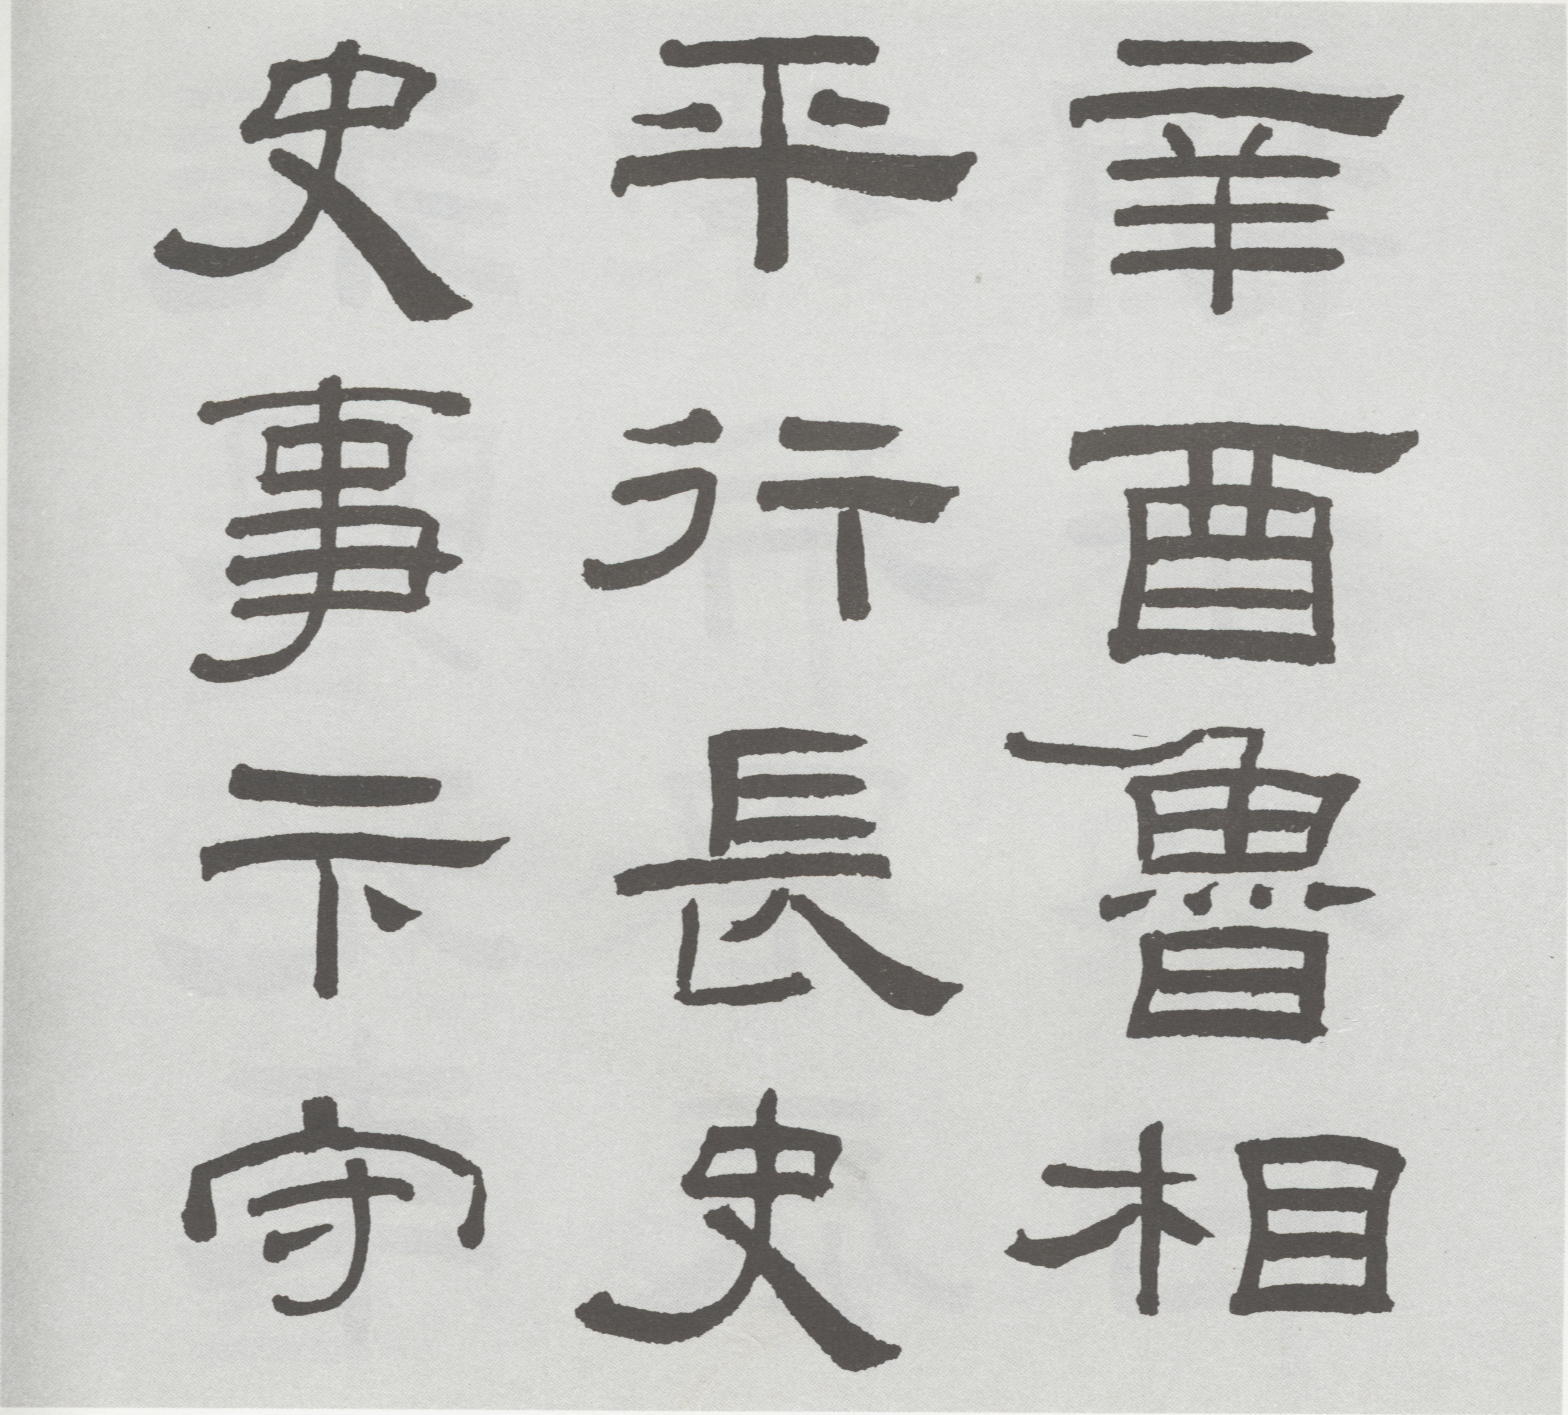 辛酉魯相
平行長史
史事卞守